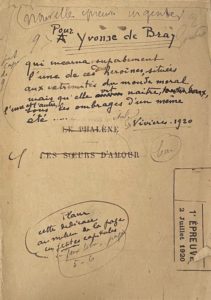 Nouvelle épreuve urgente
Pour
A Yvonne de Bray
qui incarna superbement
l'une de ces héroïnes situées
aux extrémités du monde moral
mais qu'elle vit naître,
l'une et l'autre
sous les ombrages d'un même
été ....
Viviers. 1920
LE PHALÈNE
LES SŒURS D'AMOUR
cette dédicace
au milieu de la page
en petites capitales
5-6
1e ÉPREUVE
2 Juillet 1920